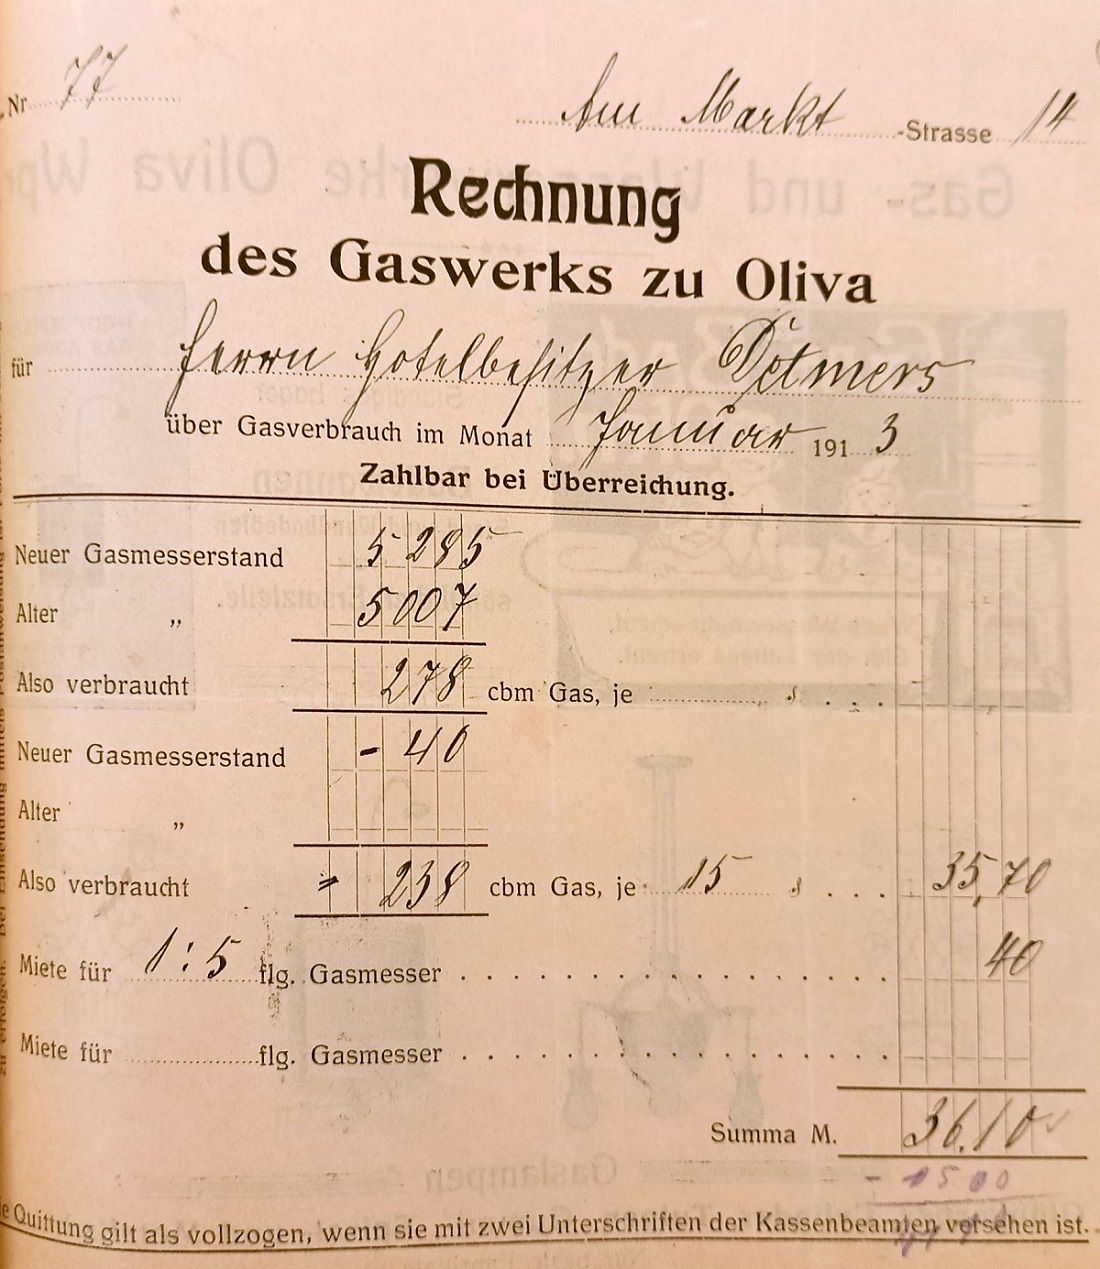 Nr 77
Am Markt -Strasse 14
Rechnung
des Gaswerks zu Oliva
für Herrn Hotelbesitzer Detmers
über Gasverbrauch im Monat Januar 1913
Zahlbar bei Überreichung.
Neuer Gasmesserstand 5285
Alter „ 5007
Also verbraucht 278 cbm Gas, je
Neuer Gasmesserstand - 40
Alter „
Also verbraucht = 238 cbm Gas, je 15 ₰ 35,70
Miete für 1:5 flg. Gasmesser 40
Miete für flg. Gasmesser
Summa M. 36.10
- 1500
Quittung gilt als vollzogen, wenn sie mit zwei Unterschriften der Kassenbeamten versehen ist.